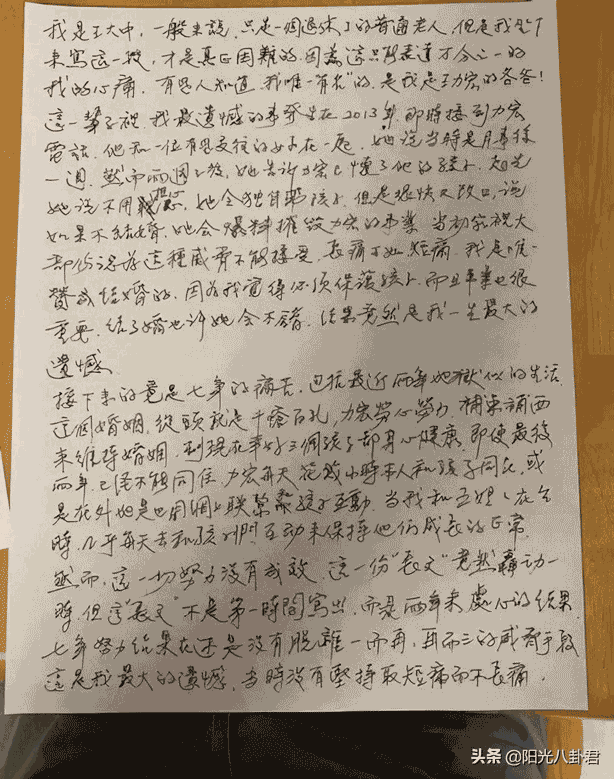 我是王大中,一般來說,只是一個退休了的普通老人,但是我坐下
來寫這一投,才是真正困難的,因為這只能表達了万分之一的
我的心痛.有些人知道,我唯一"有名"的,是我是王力宏的爸爸!
這一輩子裡,我最遺憾的事發生在2013年,那時接到力宏
電話.他和一位有過交往的女子在一起.她說當時是月事後
一週,然而兩個星期後,她告訴力宏已懷了他的孩子,起先
她說不用擔心,她会独自帶孩子,但是很快又改口,說
如果不結婚,她会爆料摧毀力宏的事業,當初家裡大
部份認為這種威脅不能接受,長痛不如短痛.我是唯一
贊成結婚的,因為我覺得必須保護孩子.而且事業也很
重要,結了婚也許她会不錯,結果竟然是我一生最大的
遺憾
接下來的竟是七年的痛苦,包括最近兩年地獄似的生活.
這個婚姻,從頭就是千瘡百孔,力宏勞心勞力,補東補西
來維持婚姻,到現在幸好三個孩子都身心健康,即使最後
兩年已經不能同住,力宏每天花數小時本人和孩子同在,或
是在外地也用網上聯繫孩子互動,當我和在台
時,几乎每天去和孩子們互動來保持他們成長的正常.
然而,這一切努力没有成效,這一份"長文"竟然轟动一
時,但這"長文"不是第一時間寫出,而是兩年來處心的結果,
七年努力結果在还是没有脫離一而再,再而三的威脅手段
這是我最大的遺憾,當時没有堅持取短痛而不長痛.
头条 @阳光八卦君